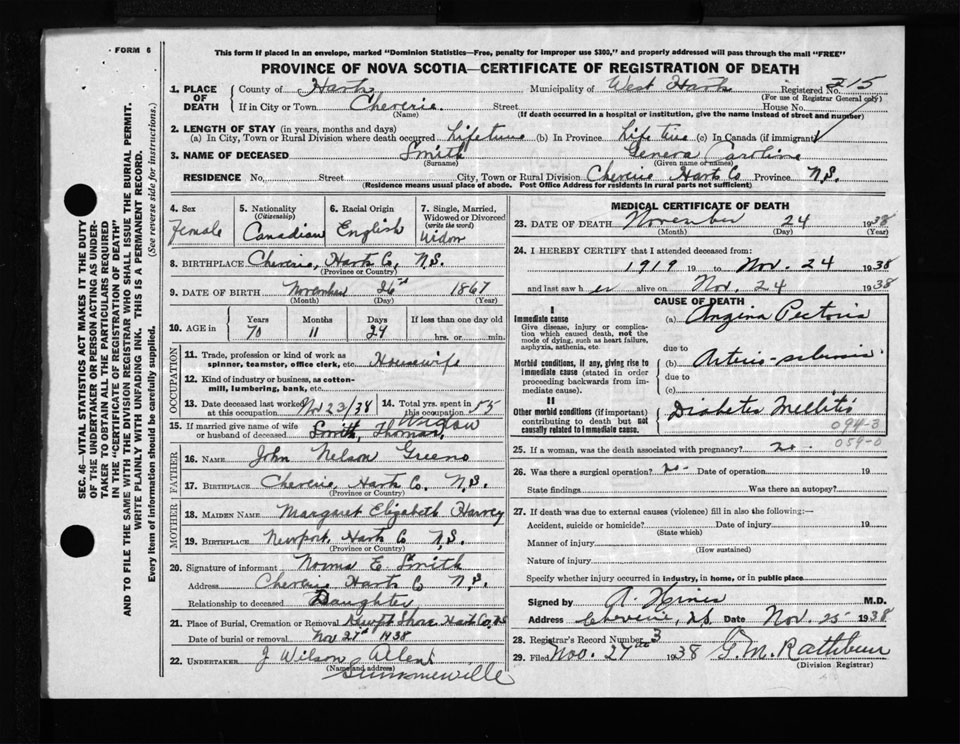 FORM 6
This form if placed in an envelope, marked "Dominion Statistics—Free, penalty for improper use $300," and properly addressed will pass through the mail "FREE"
PROVINCE OF NOVA SCOTIA—CERTIFICATE OF REGISTRATION OF DEATH
1. PLACE OF DEATH County of Hants Municipality of West Hants Registered No. 215
(For use of Registrar General only)
If in City or Town Cheverie Street House No.
(Name) (If death occurred in a hospital or institution, give the name instead of street and number)
2. LENGTH OF STAY (in years, months and days)
(a) In City, Town or Rural Division where death occurred Lifetime (b) In Province Lifetime (c) In Canada (if immigrant)
3. NAME OF DECEASED Smith Geneva Caroline
(Surname) (Given name or names)
RESIDENCE No. Street City, Town or Rural Division Cheverie Hants Co Province N.S.
(Residence means usual place of abode. Post Office Address for residents in rural parts not sufficient)
4. Sex Female
5. Nationality (Citizenship) Canadian
6. Racial Origin English
7. Single, Married, Widowed or Divorced (write the word) Widow
8. BIRTHPLACE Cheverie, Hants Co. N.S.
(Province or Country)
9. DATE OF BIRTH November 26th 1867
(Month) (Day) (Year)
10. AGE in Years Months Days If less than one day old
70 11 29 hrs. or min.
OCCUPATION
11. Trade, profession or kind of work as spinner, teamster, office clerk, etc. Housewife
12. Kind of industry or business, as cotton-mill, lumbering, bank, etc.
13. Date deceased last worked at this occupation Nov 23/38
14. Total yrs. spent in this occupation 55
15. If married give name of wife or husband of deceased Widow Smith, Thomas
FATHER
16. Name John Nelson Greeno
17. BIRTHPLACE Cheverie, Hants Co. N.S.
(Province or Country)
MOTHER
18. MAIDEN NAME Margaret Elizabeth Harvey
19. BIRTHPLACE Newport, Hants Co N.S.
(Province or Country)
20. Signature of informant Norma E. Smith
Address Cheverie Hants Co N.S.
Relationship to deceased Daughter
21. Place of Burial, Cremation or Removal Newpt Shore Hants Co, NS
Date of burial or removal Nov 27th 1938
22. UNDERTAKER J Wilson Allen
(Name and address)
Summerville
MEDICAL CERTIFICATE OF DEATH
23. DATE OF DEATH November 24 1938
(Month) (Day) (Year)
24. I HEREBY CERTIFY that I attended deceased from:
1919 19 to Nov. 24 1938
and last saw her alive on Nov. 24 1938
CAUSE OF DEATH
I
Immediate cause (a) Angina Pectoris
Give disease, injury or complication which caused death, not the mode of dying, such as heart failure, asphyxia, asthenia, etc.
due to
Morbid conditions, if any, giving rise to immediate cause (stated in order proceeding backwards from immediate cause). (b) Arterio-sclerosis
due to
(c)
II
Other morbid conditions (if important) contributing to death but not causally related to immediate cause. Diabetes Mellitis
094-3
059-0
25. If a woman, was the death associated with pregnancy? no.
26. Was there a surgical operation? no- Date of operation 19
State findings Was there an autopsy?
27. If death was due to external causes (violence) fill in also the following:—
Accident, suicide or homicide? Date of injury 19
(State which)
Manner of injury
(How sustained)
Nature of injury
Specify whether injury occurred in industry, in home, or in public place
Signed by M.D.
Address Cheverie, N.S. Date Nov. 25 1938
28. Registrar's Record Number 3
29. Filed Nov. 27th 1938 G. M. Rathbun
(Division Registrar)
SEC. 46—VITAL STATISTICS ACT MAKES IT THE DUTY
OF THE UNDERTAKER OR PERSON ACTING AS UNDER-
TAKER TO OBTAIN ALL THE PARTICULARS REQUIRED
IN THE "CERTIFICATE OF REGISTRATION OF DEATH"
AND TO FILE THE SAME WITH THE DIVISION REGISTRAR WHO SHALL ISSUE THE BURIAL PERMIT.
WRITE PLAINLY WITH UNFADING INK. THIS IS A PERMANENT RECORD.
Every item of information should be carefully supplied. (See reverse side for instructions.)